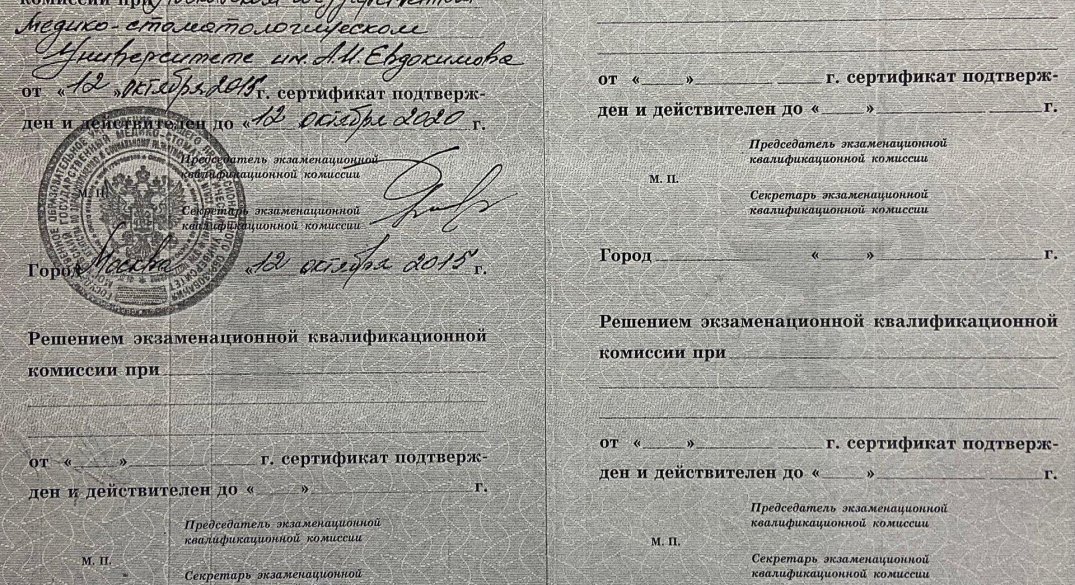 комиссии при Московском государственном
Медико-стоматологическом
Университете им. А.И. Евдокимова
от «12» октября 2015 г. сертификат подтверж-
ден и действителен до «12 октября 2020 г.
Председатель экзаменационной
квалификационной комиссии
М. П.
Секретарь экзаменационной
квалификационной комиссии
Город Москва «12 октября 2015 г.
Решением экзаменационной квалификационной
комиссии при
от « » г. сертификат подтверж-
ден и действителен до « » г.
Председатель экзаменационной
квалификационной комиссии
М. П.
Секретарь экзаменационной
от « » г. сертификат подтверж-
ден и действителен до « » г.
Председатель экзаменационной
квалификационной комиссии
М. П.
Секретарь экзаменационной
квалификационной комиссии
Город « » г.
Решением экзаменационной квалификационной
комиссии при
от « » г. сертификат подтверж-
ден и действителен до « » г.
Председатель экзаменационной
квалификационной комиссии
М. П.
Секретарь экзаменационной
квалификационной комиссии